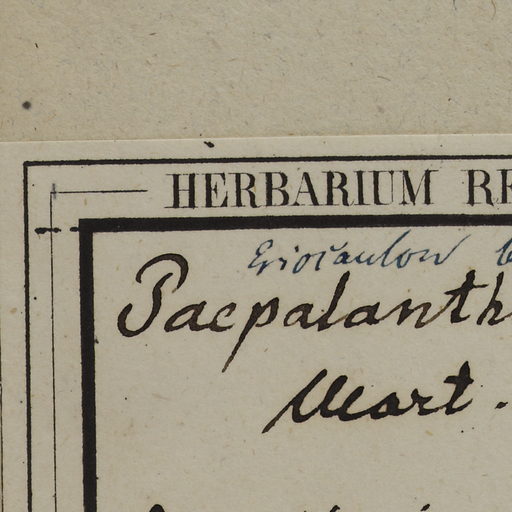 HERBARIUM
Eriocaulon
Paepalanth
Mart.